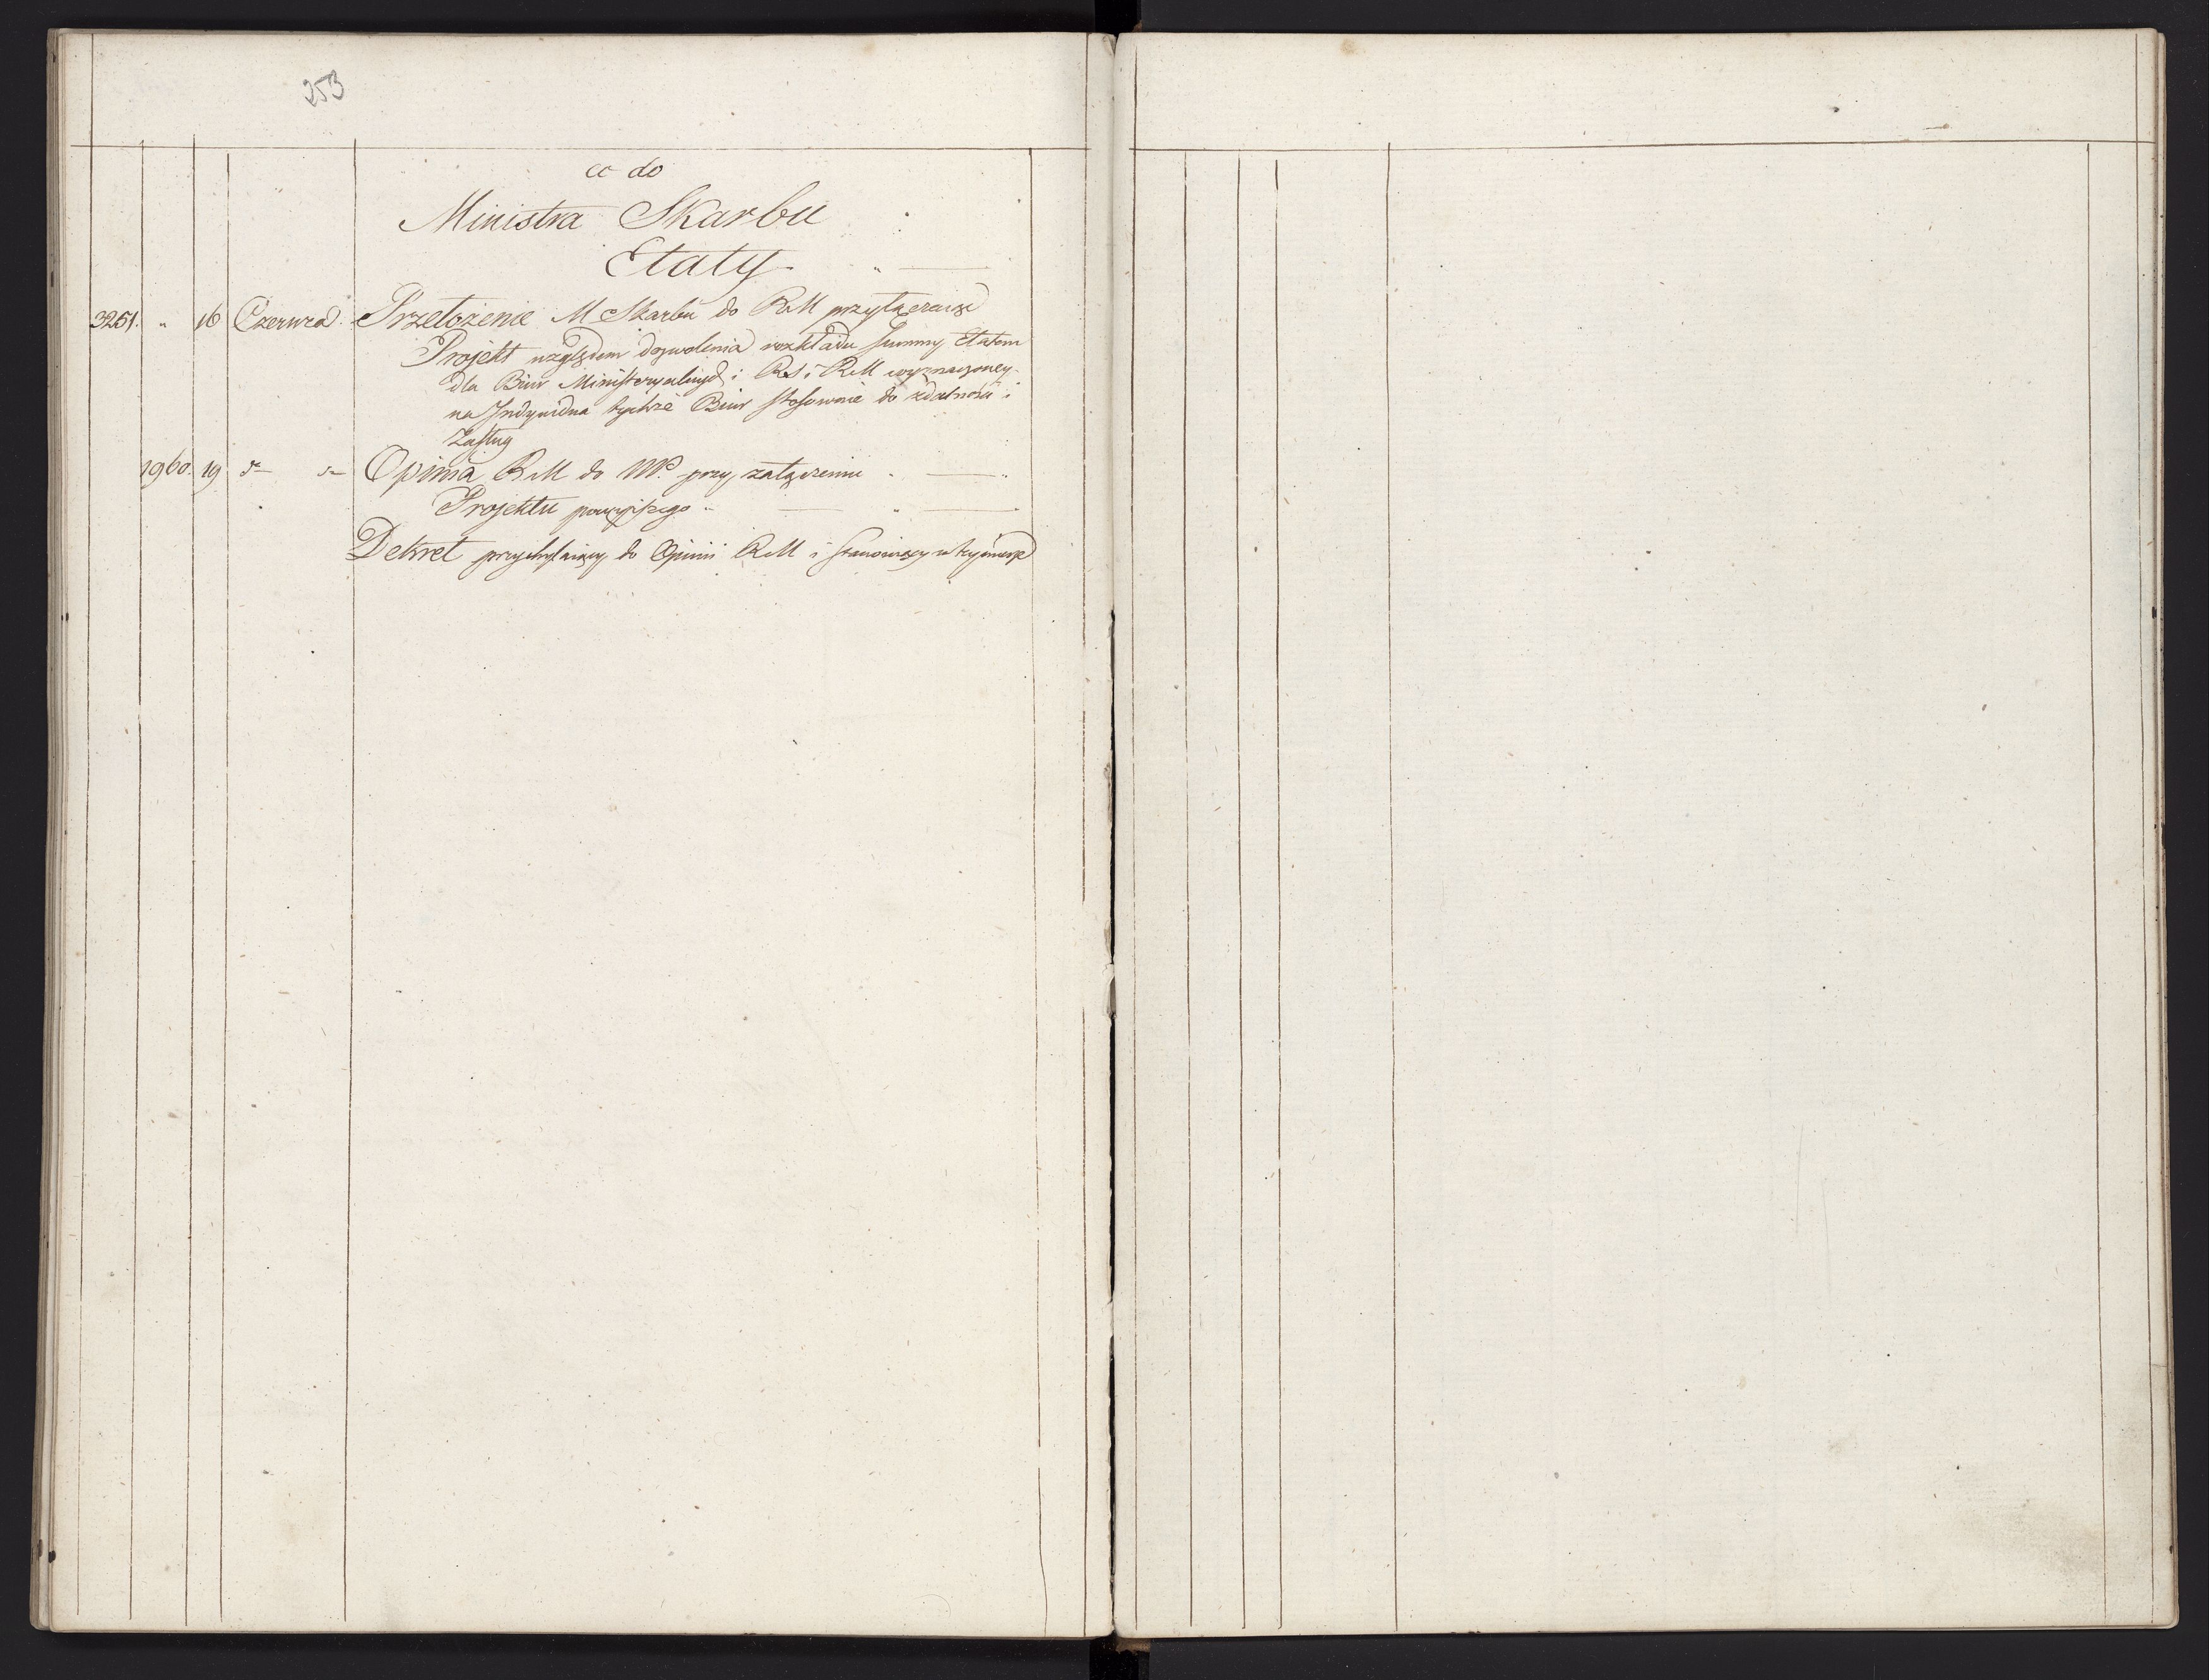 253
co do
Ministra Skarbu
Etaty
3251. " 16 Czerwca Przełożenie M Skarbu do RM przyłączaiąc
Projekt względem dozwolenia rozkładu Summy Etatem
dla Biur Ministeryalnych i RS i RM wyznaczoney
na Indywidua tychże Biur stosownie do zdatności i
Zasług
1960. 19 do do Opinia RM do NP. przy załączeniu
Projektu powyższego
Dekret przychylaiący do Opinii RM i stanowiący w tey mierze